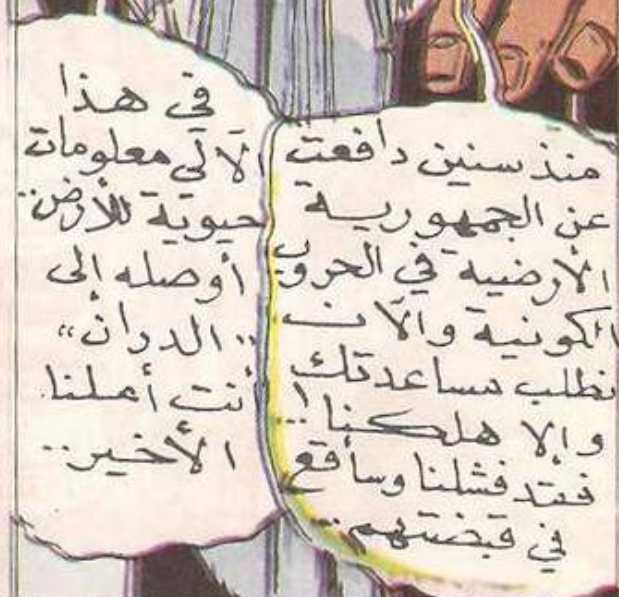 منذ سنين دافعت
عن الجمهورية
الأرضية في الحروب
الكونية والآن
نطلب مساعدتك
وإلا هلكنا!..
فقد فشلنا وسأقع
في قبضتهم..
في هذا
الآلي معلومات
حيوية للأرض..
أوصله إلى
"الدران"
أنت أملنا
الأخير..